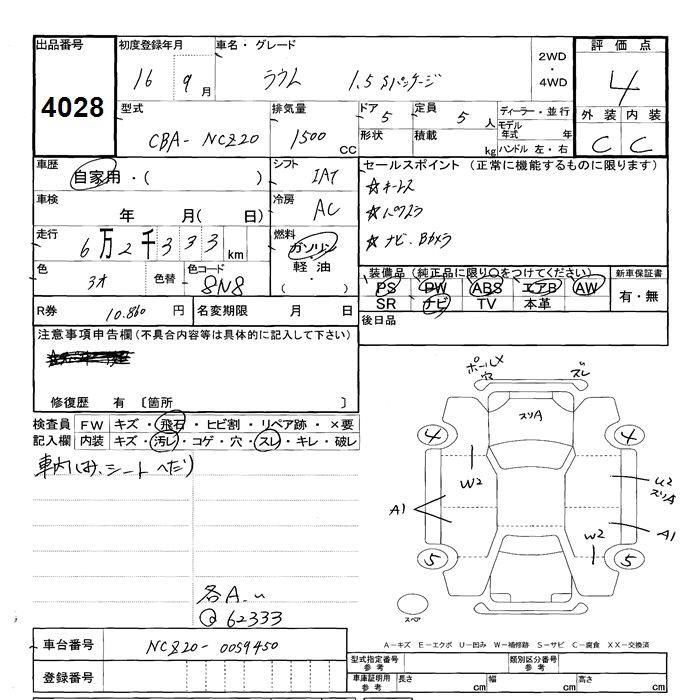 出品番号 初度登録年月 車名・グレード 評価点
4028 16 9月 ラウム 1.5 Sパッケージ 2WD・4WD 4
型式 排気量 ドア 5 定員 5人 ディーラー・並行 外装 内装
CBA- NCZ20 1500 CC 形状 積載 kg モデル年式 年 ハンドル 左・右 C C
車歴 自家用・( ) シフト IAT セールスポイント (正常に機能するものに限ります)
☆キーレス
車検 年 月( 日) 冷房 AC ☆パワスラ
走行 6万2千333km 燃料 ガソリン・軽油・( ) ☆ナビ、Bカメラ
色 色替 色コード 8N8
装備品(純正品に限り○をつけてください) 新車保証書
PS PW ABS エアB AW 有・無
SR ナビ TV 本革
R券 10.860円 名変期限 月 日 後日品
注意事項申告欄(不具合内容等は具体的に記入して下さい)
修復歴 有 〔箇所 〕
検査員 FW キズ・飛石・ヒビ割・リペア跡・×要
記入欄 内装 キズ・汚レ・コゲ・穴・スレ・キレ・破レ
車内しみ、シートへたり
ポール×
穴 ズレ
スリA
4 4
W2 U2
スリA
A1 W2 A1
5 5
各A.u
@62333
スペア
A-キズ E-エクボ U-凹み W-補修跡 S-サビ C-腐食 XX-交換済
車台番号 NCZ20-0059450
型式指定番号 参考 類別区分番号 参考
登録番号 車庫証明用 参考 長さ cm 幅 cm 高さ cm